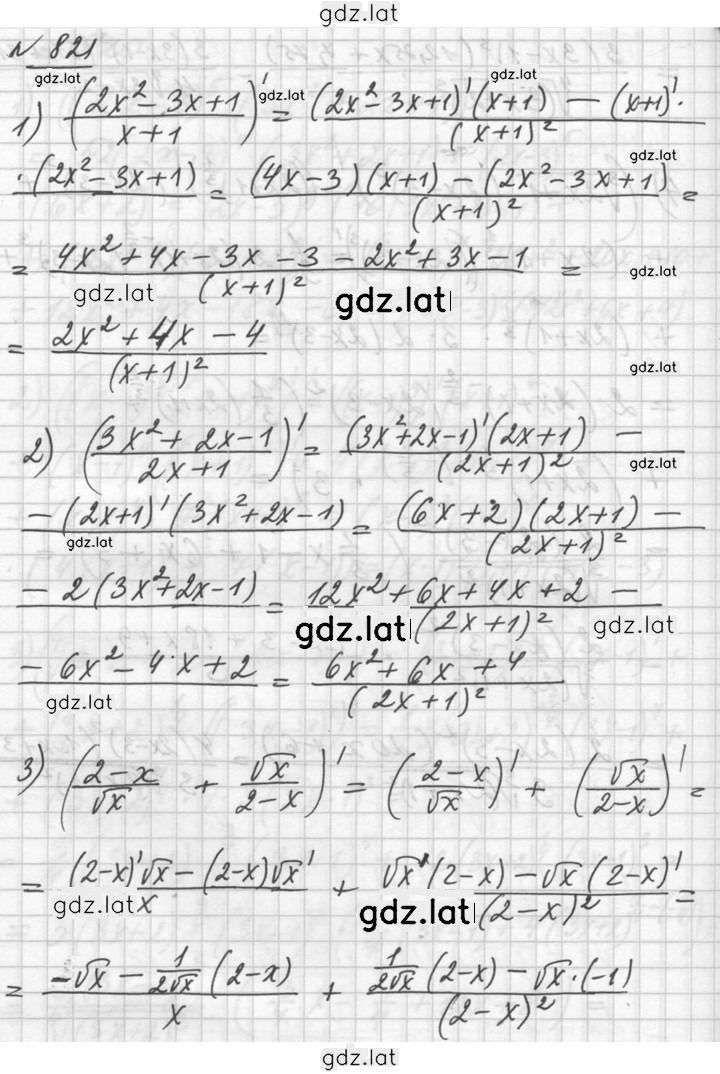 gdz.lat
№ 821
gdz.lat
1) ((2x² - 3x + 1)/(x + 1))' = ((2x² - 3x + 1)'(x+1) - (x+1)'·
gdz.lat gdz.lat
(x+1)²
·(2x² - 3x + 1) = ((4x - 3)(x+1) - (2x² - 3x + 1))/(x+1)² =
gdz.lat
= (4x² + 4x - 3x - 3 - 2x² + 3x - 1)/(x+1)² =
gdz.lat gdz.lat gdz.lat
= (2x² + 4x - 4)/(x+1)²
gdz.lat
2) ((3x² + 2x - 1)/(2x + 1))' = ((3x² + 2x - 1)'(2x + 1) -)/(2x+1)²
gdz.lat
- (2x+1)'(3x² + 2x - 1) = ((6x + 2)(2x + 1) -)/(2x+1)²
gdz.lat
- 2(3x² + 2x - 1) = (12x² + 6x + 4x + 2 -)/(2x+1)²
gdz.lat gdz.lat
- 6x² - 4x + 2 = (6x² + 6x + 4)/(2x+1)²
gdz.lat
3) ((2-x)/√x + √x/(2-x))' = ((2-x)/√x)' + (√x/(2-x))' =
= ((2-x)'√x - (2-x)√x')/x + (√x'(2-x) - √x(2-x)')/(2-x)² =
gdz.lat gdz.lat
= (-√x - 1/(2√x) (2-x))/x + (1/(2√x) (2-x) - √x·(-1))/(2-x)²
gdz.lat